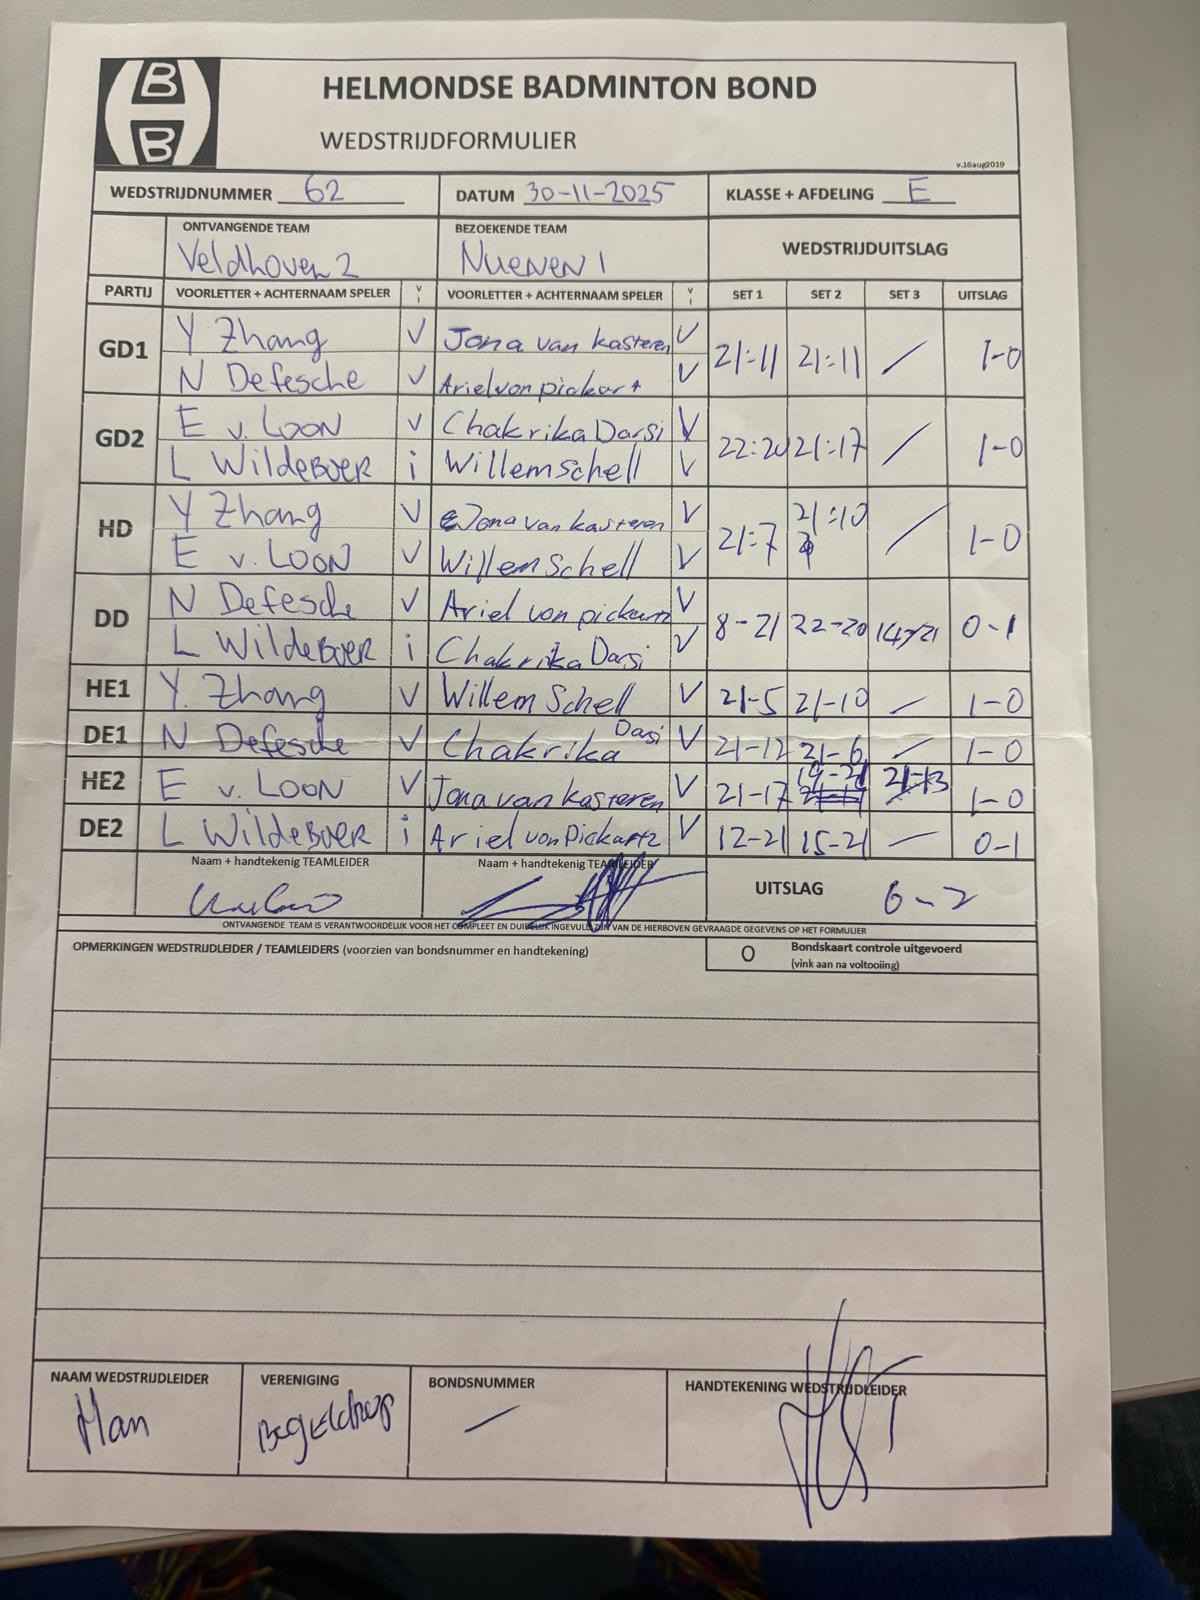 B
B
HELMONDSE BADMINTON BOND
WEDSTRIJDFORMULIER
v.16aug2019
WEDSTRIJDNUMMER 62 DATUM 30-11-2025 KLASSE + AFDELING E
ONTVANGENDE TEAM BEZOEKENDE TEAM WEDSTRIJDUITSLAG
Veldhoven 2 NUENEN 1
PARTIJ VOORLETTER + ACHTERNAAM SPELER V I VOORLETTER + ACHTERNAAM SPELER V I SET 1 SET 2 SET 3 UITSLAG
GD1 Y Zhang V Jona van kasteren V 21:11 21:11 / 1-0
N Defesche V Ariel von pickart V
GD2 E v. LOON V Chakrika Darsi V 22:20 21:17 / 1-0
L WildeBOER i Willem Schell V
HD Y Zhang V Jona van kasteren V 21:7 21:10 / 1-0
E v. LOON V Willem Schell V
DD N Defesche V Ariel von pickartz V 8-21 22-20 14-21 0-1
L WildeBOER i Chakrika Darsi V
HE1 Y. Zhang V Willem Schell V 21-5 21-10 - 1-0
DE1 N Defesche V Chakrika Dasi V 21-12 21-6 - 1-0
HE2 E v. LOON V Jona van kasteren V 21-17 19-21 21-13 1-0
DE2 L WildeBOER i Ariel von Pickartz V 12-21 15-21 - 0-1
Naam + handtekenig TEAMLEIDER Naam + handtekenig TEAMLEIDER UITSLAG 6-2
ONTVANGENDE TEAM IS VERANTWOORDELIJK VOOR HET COMPLEET EN DUIDELIJK INGEVULD ZIJN VAN DE HIERBOVEN GEVRAAGDE GEGEVENS OP HET FORMULIER
OPMERKINGEN WEDSTRIJDLEIDER / TEAMLEIDERS (voorzien van bondsnummer en handtekening) O Bondskaart controle uitgevoerd
(vink aan na voltooiing)
NAAM WEDSTRIJDLEIDER VERENIGING BONDSNUMMER HANDTEKENING WEDSTRIJDLEIDER
Han -